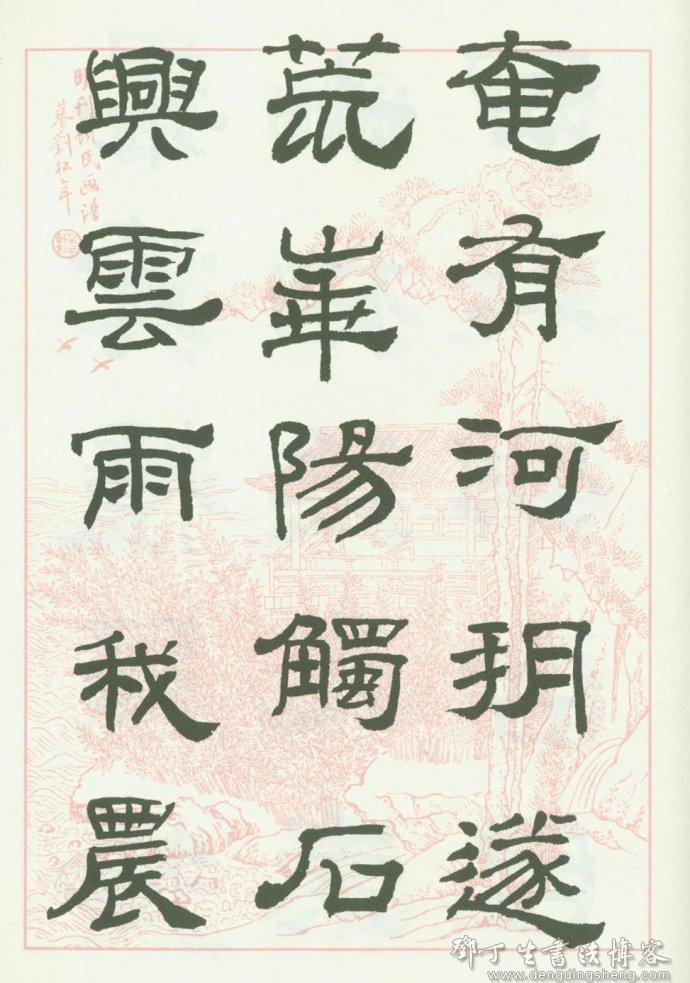 奄有河朔遂
荒崋陽觸石
興雲雨我農
摹劉松年
鄧丁生書法博客
www.dengdingsheng.com